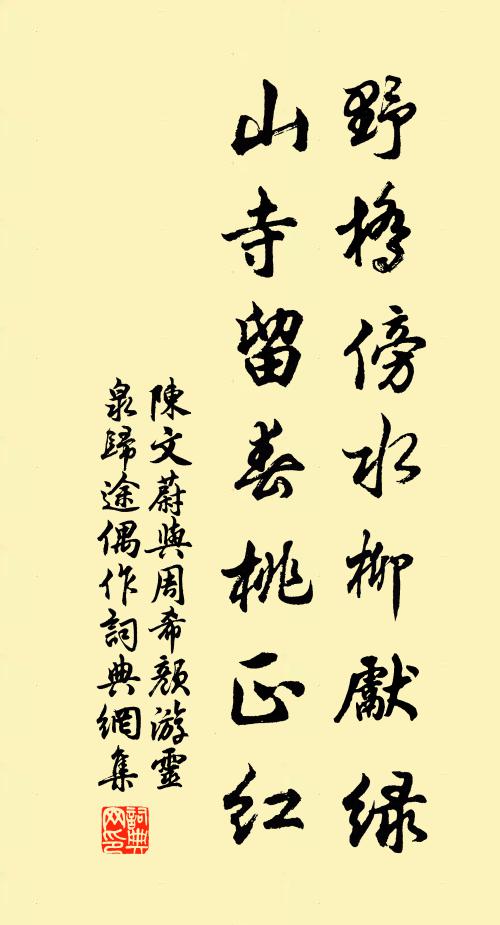 野橋傍水柳獻绿
山寺留春桃正红
陳文蔚與周希顏游靈
泉歸途偶作詞典網集
詞典
网印